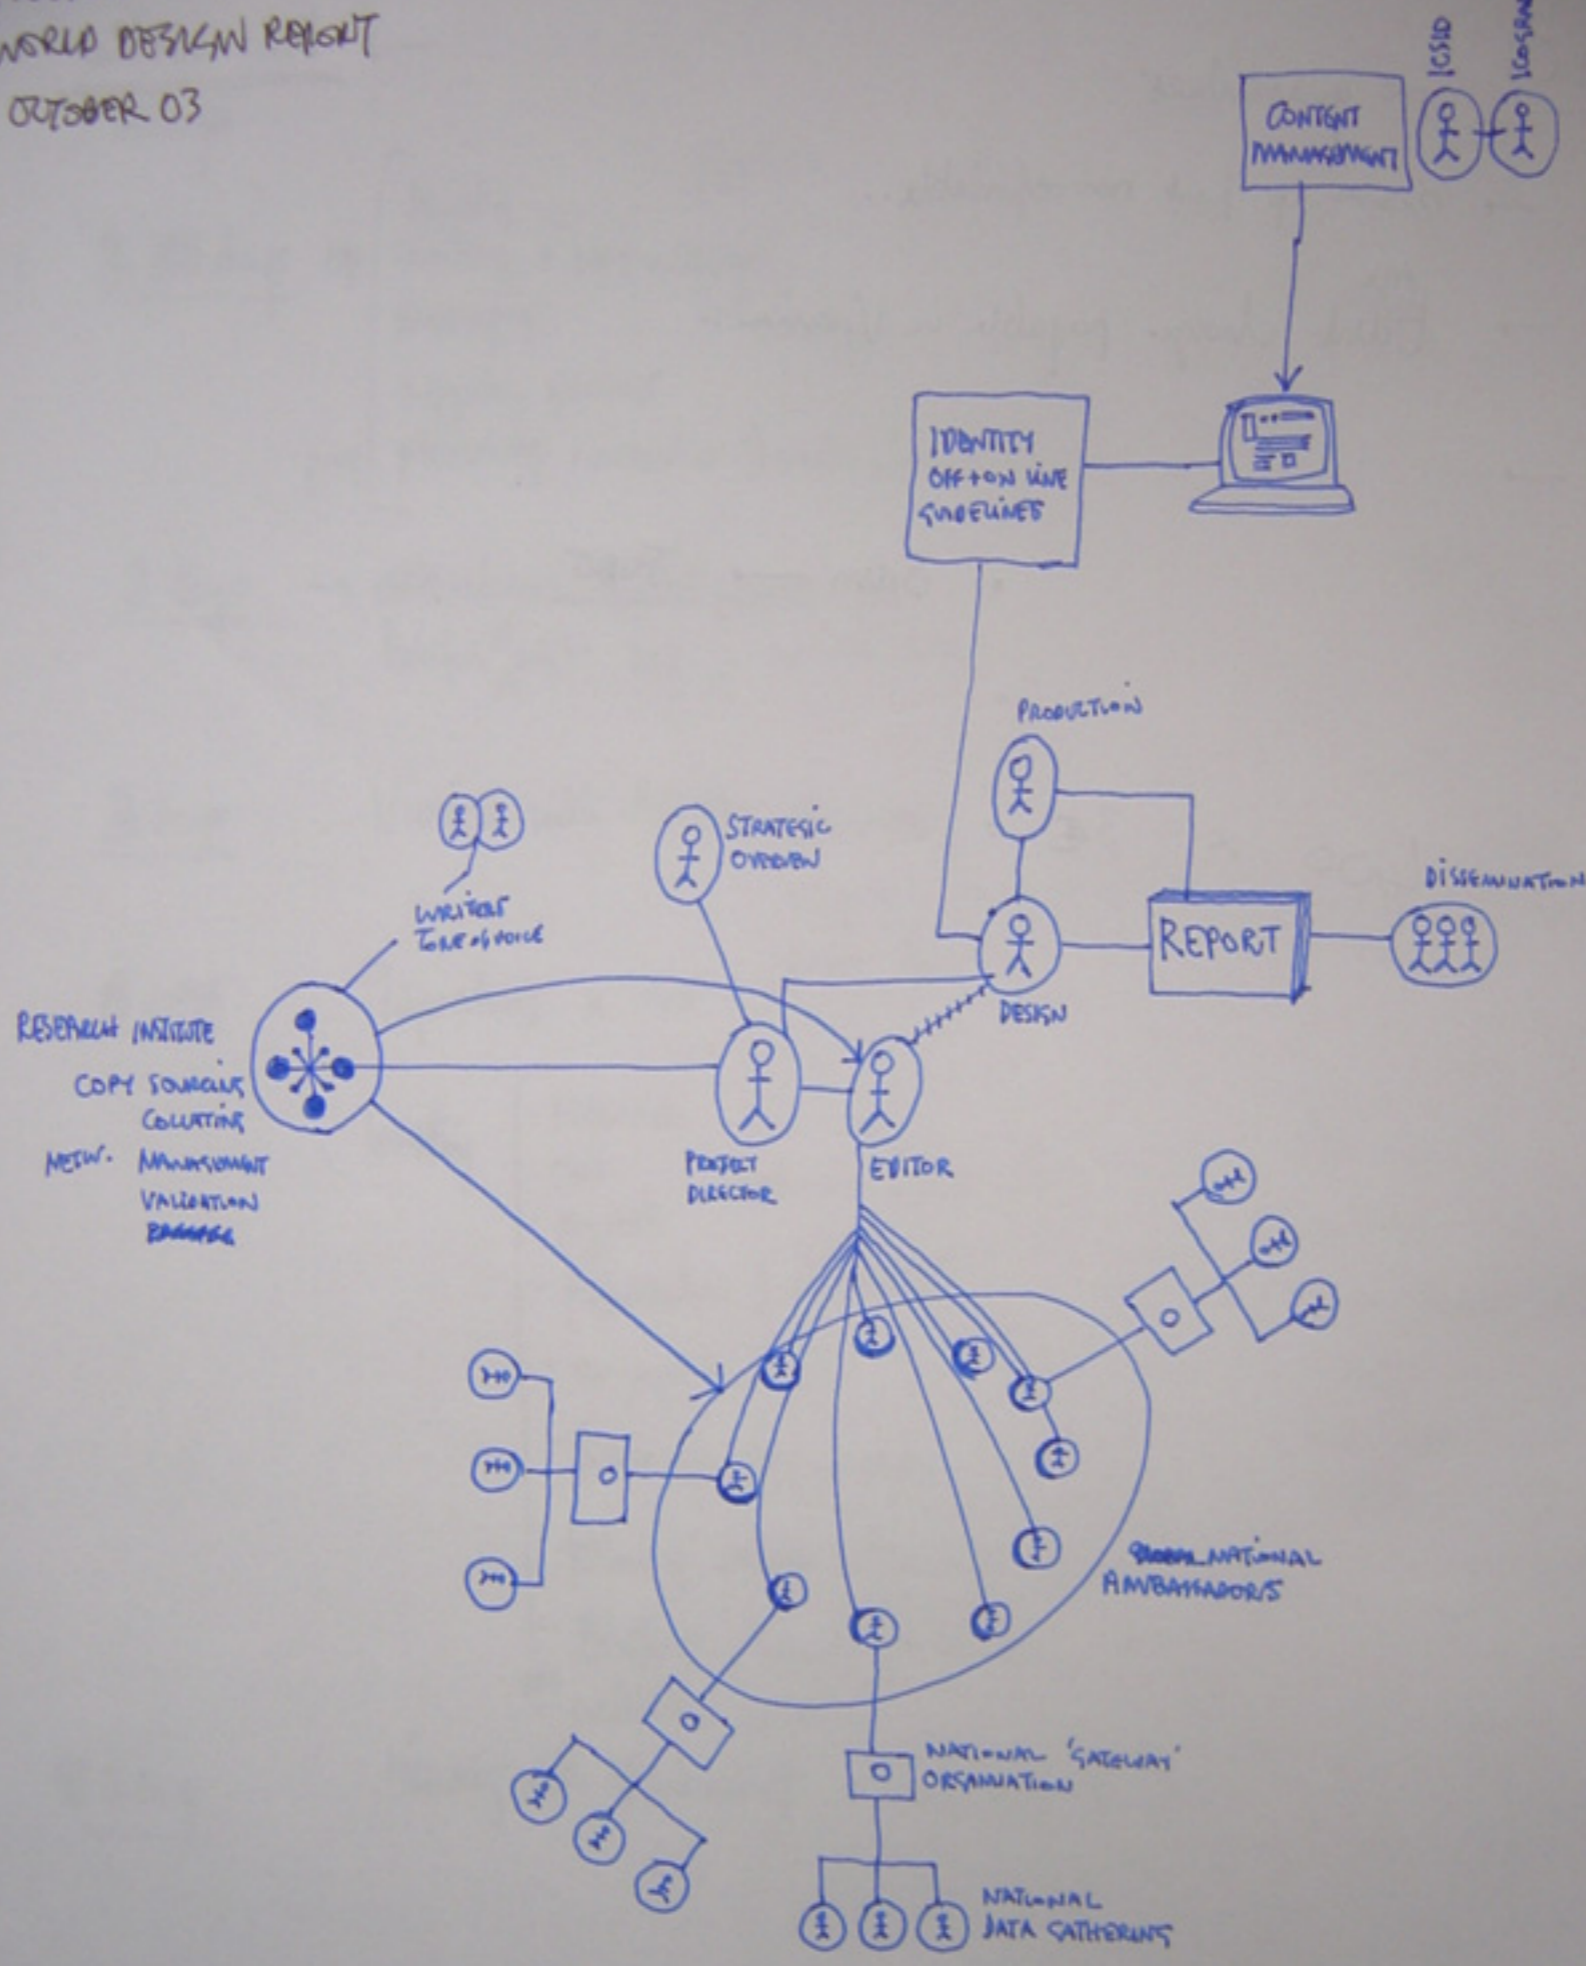 WORLD DESIGN REPORT
OCTOBER 03
ICSID
CONTENT
MANAGEMENT
IDENTITY
OFF + ON LINE
GUIDELINES
PRODUCTION
STRATEGIC
OVERVIEW
DISSEMINATION
WRITERS
TONE OF VOICE
REPORT
DESIGN
RESEARCH INSTITUTE
COPY SOURCING
COLLATING
NETW. MANAGEMENT
VALIDATION
PROJECT
DIRECTOR
EDITOR
NATIONAL
AMBASSADORS
NATIONAL 'GATEWAY'
ORGANISATION
NATIONAL
DATA GATHERING